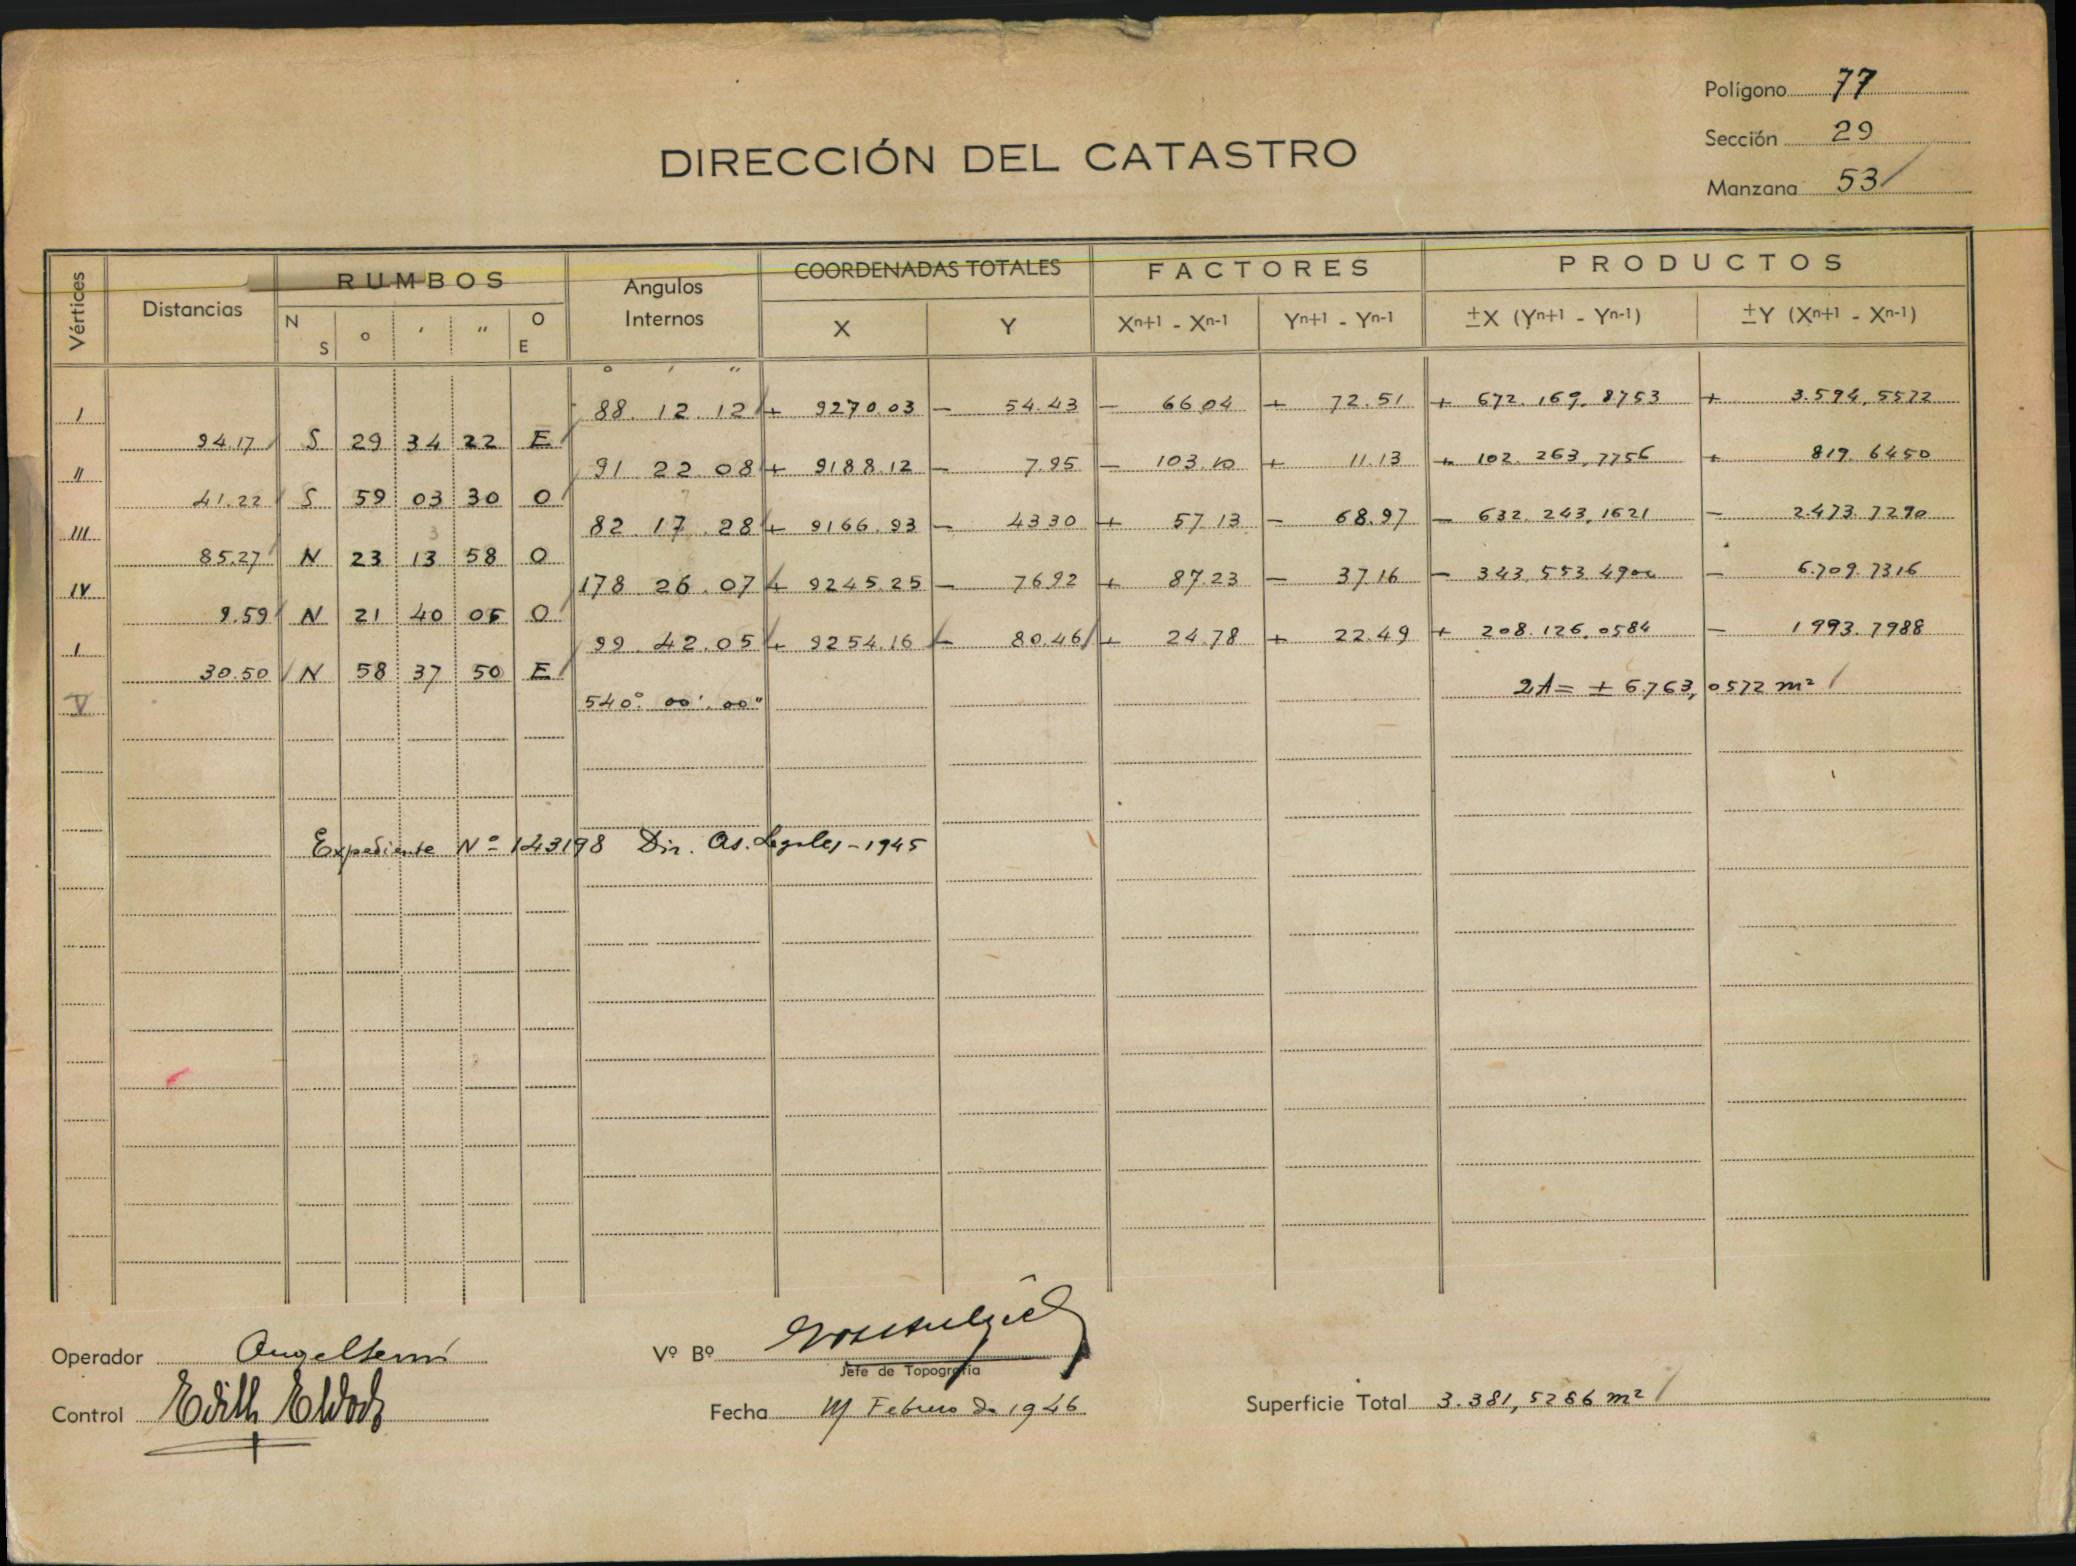 Polígono 77
Sección 29
Manzana 53
DIRECCIÓN DEL CATASTRO
Vértices Distancias RUMBOS Angulos Internos COORDENADAS TOTALES FACTORES PRODUCTOS
N S ° ' " O E X Y Xⁿ⁺¹ - Xⁿ⁻¹ Yⁿ⁺¹ - Yⁿ⁻¹ ±X (Yⁿ⁺¹ - Yⁿ⁻¹) ±Y (Xⁿ⁺¹ - Xⁿ⁻¹)
° ' "
I 88. 12. 12 + 9270.03 - 54.43 - 66.04 + 72.51 + 672.169,8753 + 3.594,5572
94.17 S 29 34 22 E
II 91 22.08 + 9188.12 - 7.95 - 103.10 + 11.13 + 102.263,7756 + 819.6450
41.22 S 59 03 30 O
III 82. 17. 28 + 9166.93 - 43 30 + 57 13 - 68.97 - 632.243,1621 - 2.473.7290
85.27 N 23 13 58 O
IV 178 26.07 + 9245.25 - 76.92 + 87.23 - 37.16 - 343.553.4900 - 6.709.7316
9.59 N 21 40 05 O
I 99. 42.05 + 9254.16 - 80.46 + 24.78 + 22.49 + 208.126,0584 - 1993.7988
30.50 N 58 37 50 E
V 540° 00' 00" 2A = ± 6.763,0572 m²
Expediente Nº 143198 Dir. As. Legales - 1945
Operador
Vº Bº
Jefe de Topografía
Control
Fecha Febrero de 1946
Superficie Total 3.381,5286 m²